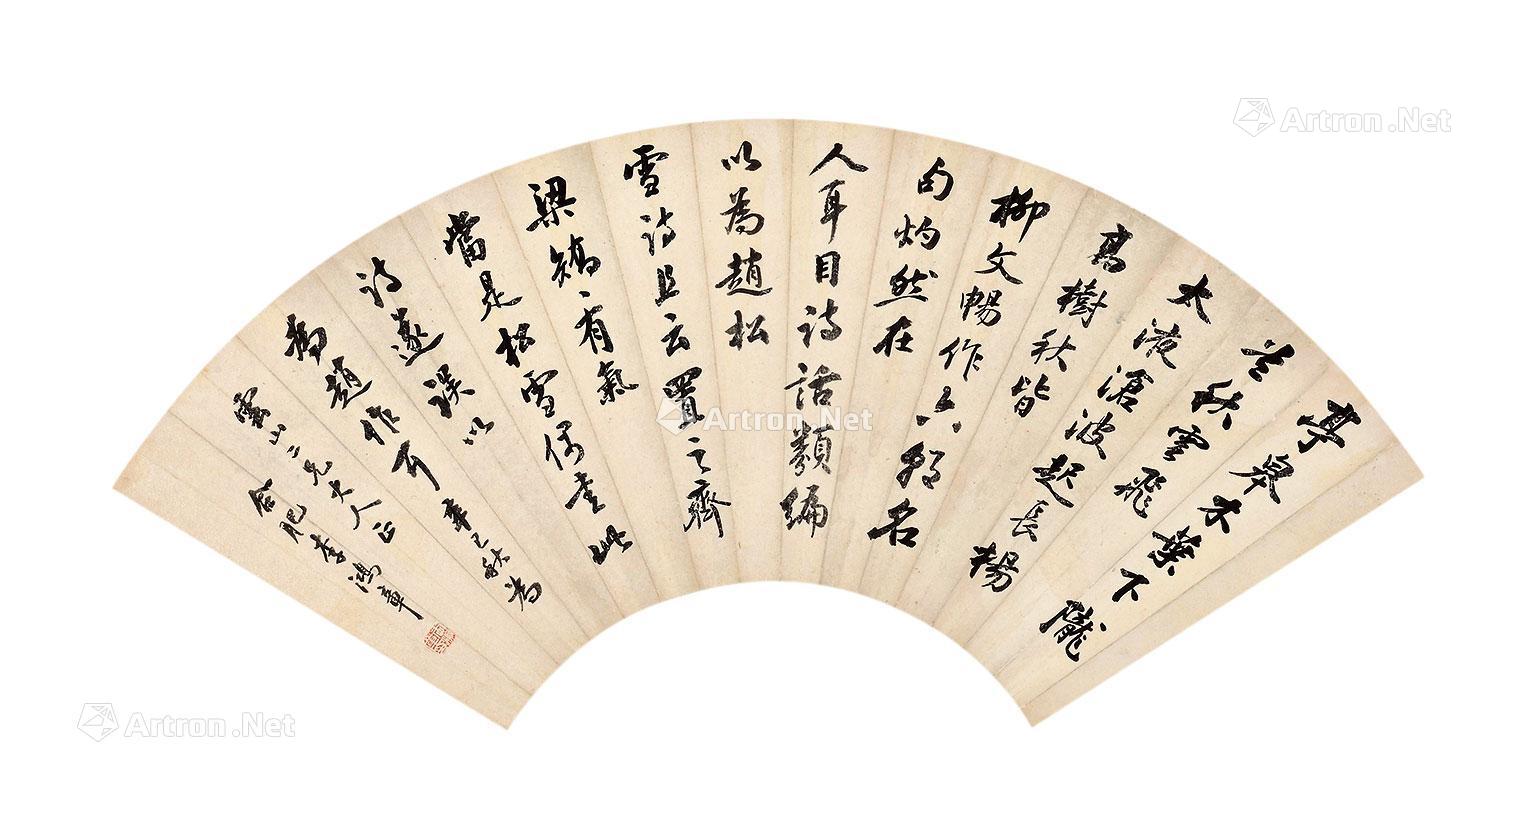 亭皋木葉下隴
首秋雲飛
太液滄波起長楊
高樹秋皆
柳文暢作六朝名
句灼然在
人耳目詩話類編
以為趙松
雪詩且云置之齊
梁矯矯有氣
當是松雪偶書此
詩遂誤以
為趙作耳 辛巳秋為
雲山二兄大人正
合肥李鴻章
Artron.Net
Artron.Net
Artron.Net